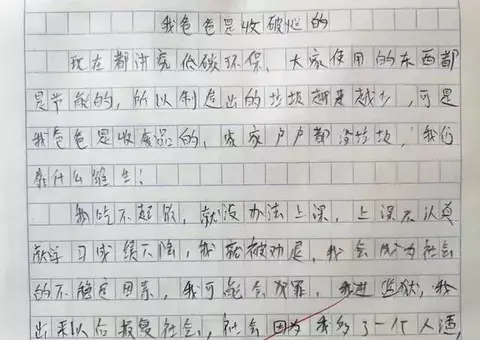 我爸爸是收破烂的
现在都讲究低碳环保，大家使用的东西都
是节能的，所以制造出的垃圾越来越少，可是
我爸爸是收废品的，家家户户都没垃圾，我们
靠什么维生！
我吃不起饭，就没办法上课，上课不认真
就学习成绩下降，我就被劝退，我会成为社会
的不稳定因素，我可能会犯罪，我进监狱，我
出来以后报复社会，社会因为我多了一个人渣，